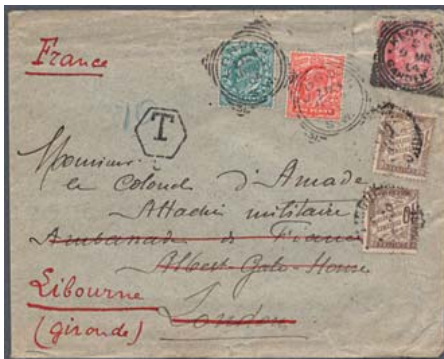 France
T
Monsieur
le Colonel d'Amade
Attaché militaire
Ambassade de France
Albert-Gate-House
London
Libourne
(gironde)